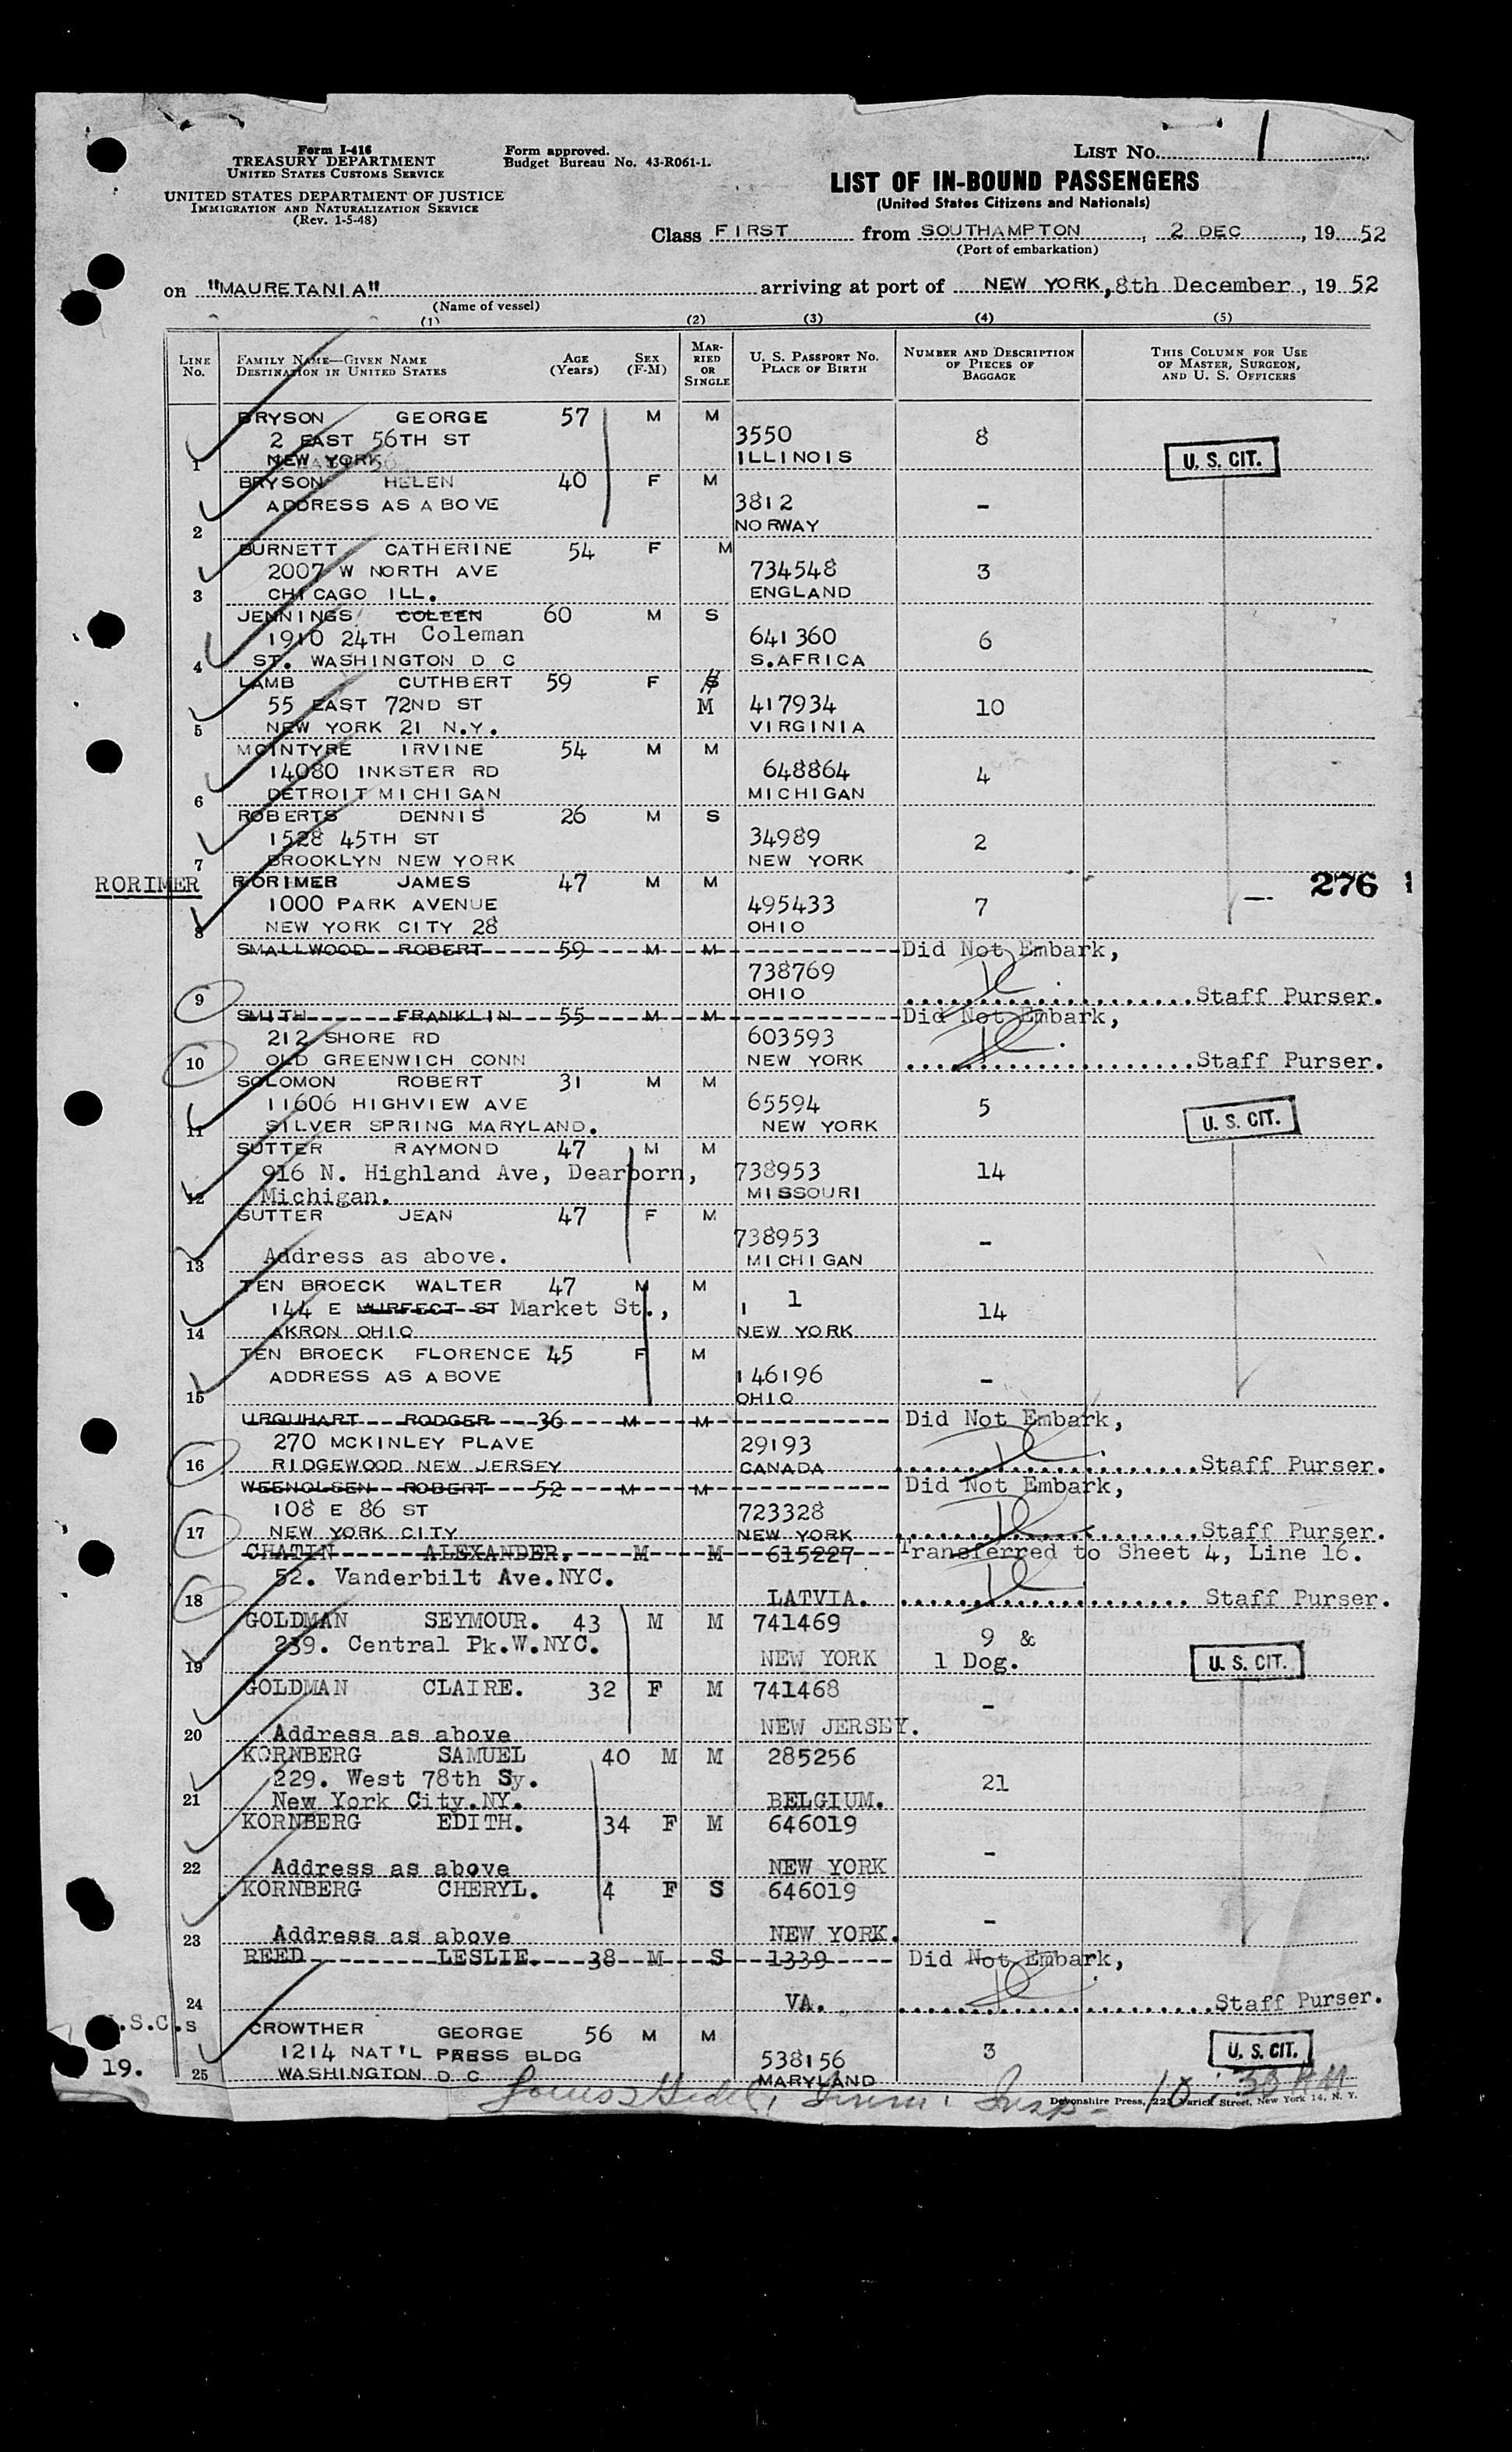 Form I-416
TREASURY DEPARTMENT
UNITED STATES CUSTOMS SERVICE
UNITED STATES DEPARTMENT OF JUSTICE
IMMIGRATION AND NATURALIZATION SERVICE
(Rev. 1-5-48)
Form approved.
Budget Bureau No. 43-R061-1.
LIST NO. 1
LIST OF IN-BOUND PASSENGERS
(United States Citizens and Nationals)
Class FIRST from SOUTHAMPTON, 2 DEC, 19 52
(Port of embarkation)
on "MAURETANIA" arriving at port of NEW YORK, 8th December, 19 52
(Name of vessel)
(1) (2) (3) (4) (5)
LINE NO. FAMILY NAME—GIVEN NAME DESTINATION IN UNITED STATES AGE (Years) SEX (F-M) MARRIED OR SINGLE U. S. PASSPORT NO. PLACE OF BIRTH NUMBER AND DESCRIPTION OF PIECES OF BAGGAGE THIS COLUMN FOR USE OF MASTER, SURGEON, AND U. S. OFFICERS
BRYSON GEORGE 57 M M
2 EAST 56TH ST 3550 8
1 NEW YORK ILLINOIS U. S. CIT.
BRYSON HELEN 40 F M
ADDRESS AS ABOVE 3812 -
2 NORWAY
BURNETT CATHERINE 54 F M
2007 W NORTH AVE 734548 3
3 CHICAGO ILL. ENGLAND
JENNINGS COLEEN 60 M S
1910 24TH Coleman 641360 6
4 ST. WASHINGTON D C S.AFRICA
LAMB CUTHBERT 59 F S
55 EAST 72ND ST M 417934 10
5 NEW YORK 21 N.Y. VIRGINIA
MCINTYRE IRVINE 54 M M
14080 INKSTER RD 648864 4
6 DETROIT MICHIGAN MICHIGAN
ROBERTS DENNIS 26 M S
1528 45TH ST 34989 2
7 BROOKLYN NEW YORK NEW YORK
RORIMER RORIMER JAMES 47 M M 276 1
1000 PARK AVENUE 495433 7
8 NEW YORK CITY 28 OHIO
SMALLWOOD ROBERT 59 M M Did Not Embark,
738769
9 OHIO Staff Purser.
SMITH FRANKLIN 55 M M Did Not Embark,
212 SHORE RD 603593
10 OLD GREENWICH CONN NEW YORK Staff Purser.
SOLOMON ROBERT 31 M M
11606 HIGHVIEW AVE 65594 5
11 SILVER SPRING MARYLAND. NEW YORK U. S. CIT.
SUTTER RAYMOND 47 M M
916 N. Highland Ave, Dearborn, 738953 14
12 Michigan. MISSOURI
SUTTER JEAN 47 F M
738953 -
13 Address as above. MICHIGAN
TEN BROECK WALTER 47 M M
144 E MURFECT ST Market St., 1 1 14
14 AKRON OHIO NEW YORK
TEN BROECK FLORENCE 45 F M
ADDRESS AS ABOVE 146196 -
15 OHIO
URQUHART RODGER 36 M M Did Not Embark,
270 MCKINLEY PLAVE 29193
16 RIDGEWOOD NEW JERSEY CANADA Staff Purser.
WEENOLSEN ROBERT 52 M M Did Not Embark,
108 E 86 ST 723328
17 NEW YORK CITY NEW YORK Staff Purser.
CHATIN ALEXANDER. M M 615227 Transferred to Sheet 4, Line 16.
52. Vanderbilt Ave.NYC.
18 LATVIA. Staff Purser.
GOLDMAN SEYMOUR. 43 M M 741469
239. Central Pk.W.NYC. 9 &
19 NEW YORK 1 Dog. U. S. CIT.
GOLDMAN CLAIRE. 32 F M 741468
-
20 Address as above NEW JERSEY.
KORNBERG SAMUEL 40 M M 285256
229. West 78th Sy. 21
21 New York City.NY. BELGIUM.
KORNBERG EDITH. 34 F M 646019
-
22 Address as above NEW YORK
KORNBERG CHERYL. 4 F S 646019
-
23 Address as above NEW YORK.
REED LESLIE. 38 M S 1339 Did Not Embark,
24 VA. Staff Purser.
.S.C.s CROWTHER GEORGE 56 M M
1214 NAT'L PRESS BLDG 538156 3 U. S. CIT.
19. 25 WASHINGTON D C MARYLAND
Imm. Insp- 10:30 AM
Devonshire Press, 225 Varick Street, New York 14, N. Y.